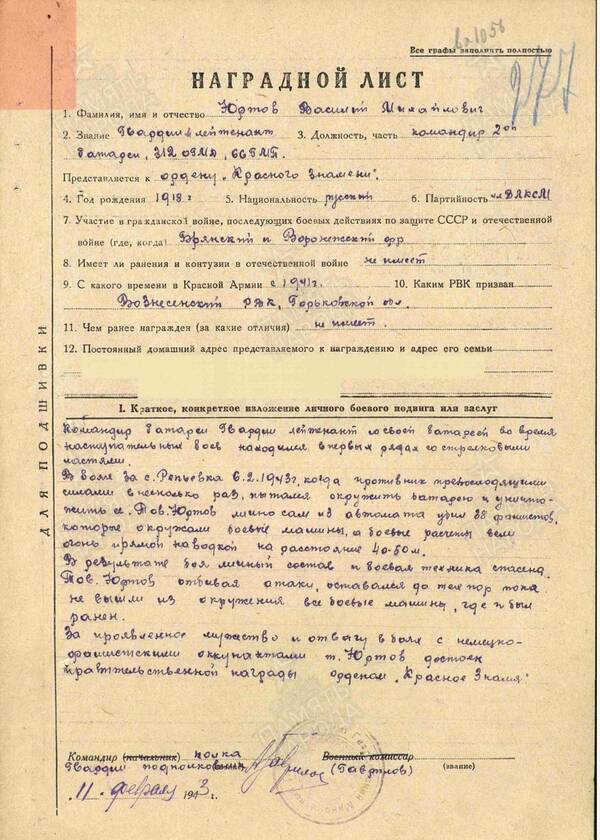 вх1056
Все графы заполнить полностью
277
НАГРАДНОЙ ЛИСТ
1. Фамилия, имя и отчество Юртов Василий Михайлович
2. Звание Гвардии лейтенант 3. Должность, часть командир 2ой
батареи, 312 ОГМД, 66 ГМП.
Представляется к ордену „Красного Знамени".
4. Год рождения 1918 г 5. Национальность русский 6. Партийность чл ВЛКСМ
7. Участие в гражданской войне, последующих боевых действиях по защите СССР и отечественной
войне (где, когда) Брянский и Воронежский фр
8. Имеет ли ранения и контузии в отечественной войне не имеет
9. С какого времени в Красной Армии с 1941 г. 10. Каким РВК призван
Вознесенский РВК, Горьковской обл.
11. Чем ранее награжден (за какие отличия) не имеет.
12. Постоянный домашний адрес представляемого к награждению и адрес его семьи
I. Краткое, конкретное изложение личного боевого подвига или заслуг
Командир батареи Гвардии лейтенант со своей батареей во время
наступательных боев находился в первых рядах со стрелковыми
частями.
В боях за с. Репьевка 6.2.1943 г. когда противник превосходящими
силами в несколько раз, пытался окружить батарею и уничто-
жить ее. Тов. Юртов лично сам из автомата убил 38 фашистов,
которые окружали боевые машины, а боевые расчеты вели
огонь прямой наводкой на расстояние 40-50 м.
В результате боя личный состав и боевая техника спасена.
Тов. Юртов отбивая атаки, оставался до тех пор пока
не вышли из окружения все боевые машины, где и был
ранен.
За проявленное мужество и отвагу в боях с немецко-
фашистскими оккупантами т. Юртов достоен
правительственной награды орденом „Красное Знамя".
Командир (начальник) полка Военный комиссар
Гвардии подполковник (Гаврилов) (звание)
„11" февраля 1943 г.
ДЛЯ ПОДШИВКИ
ПАМЯТЬ НАРОДА